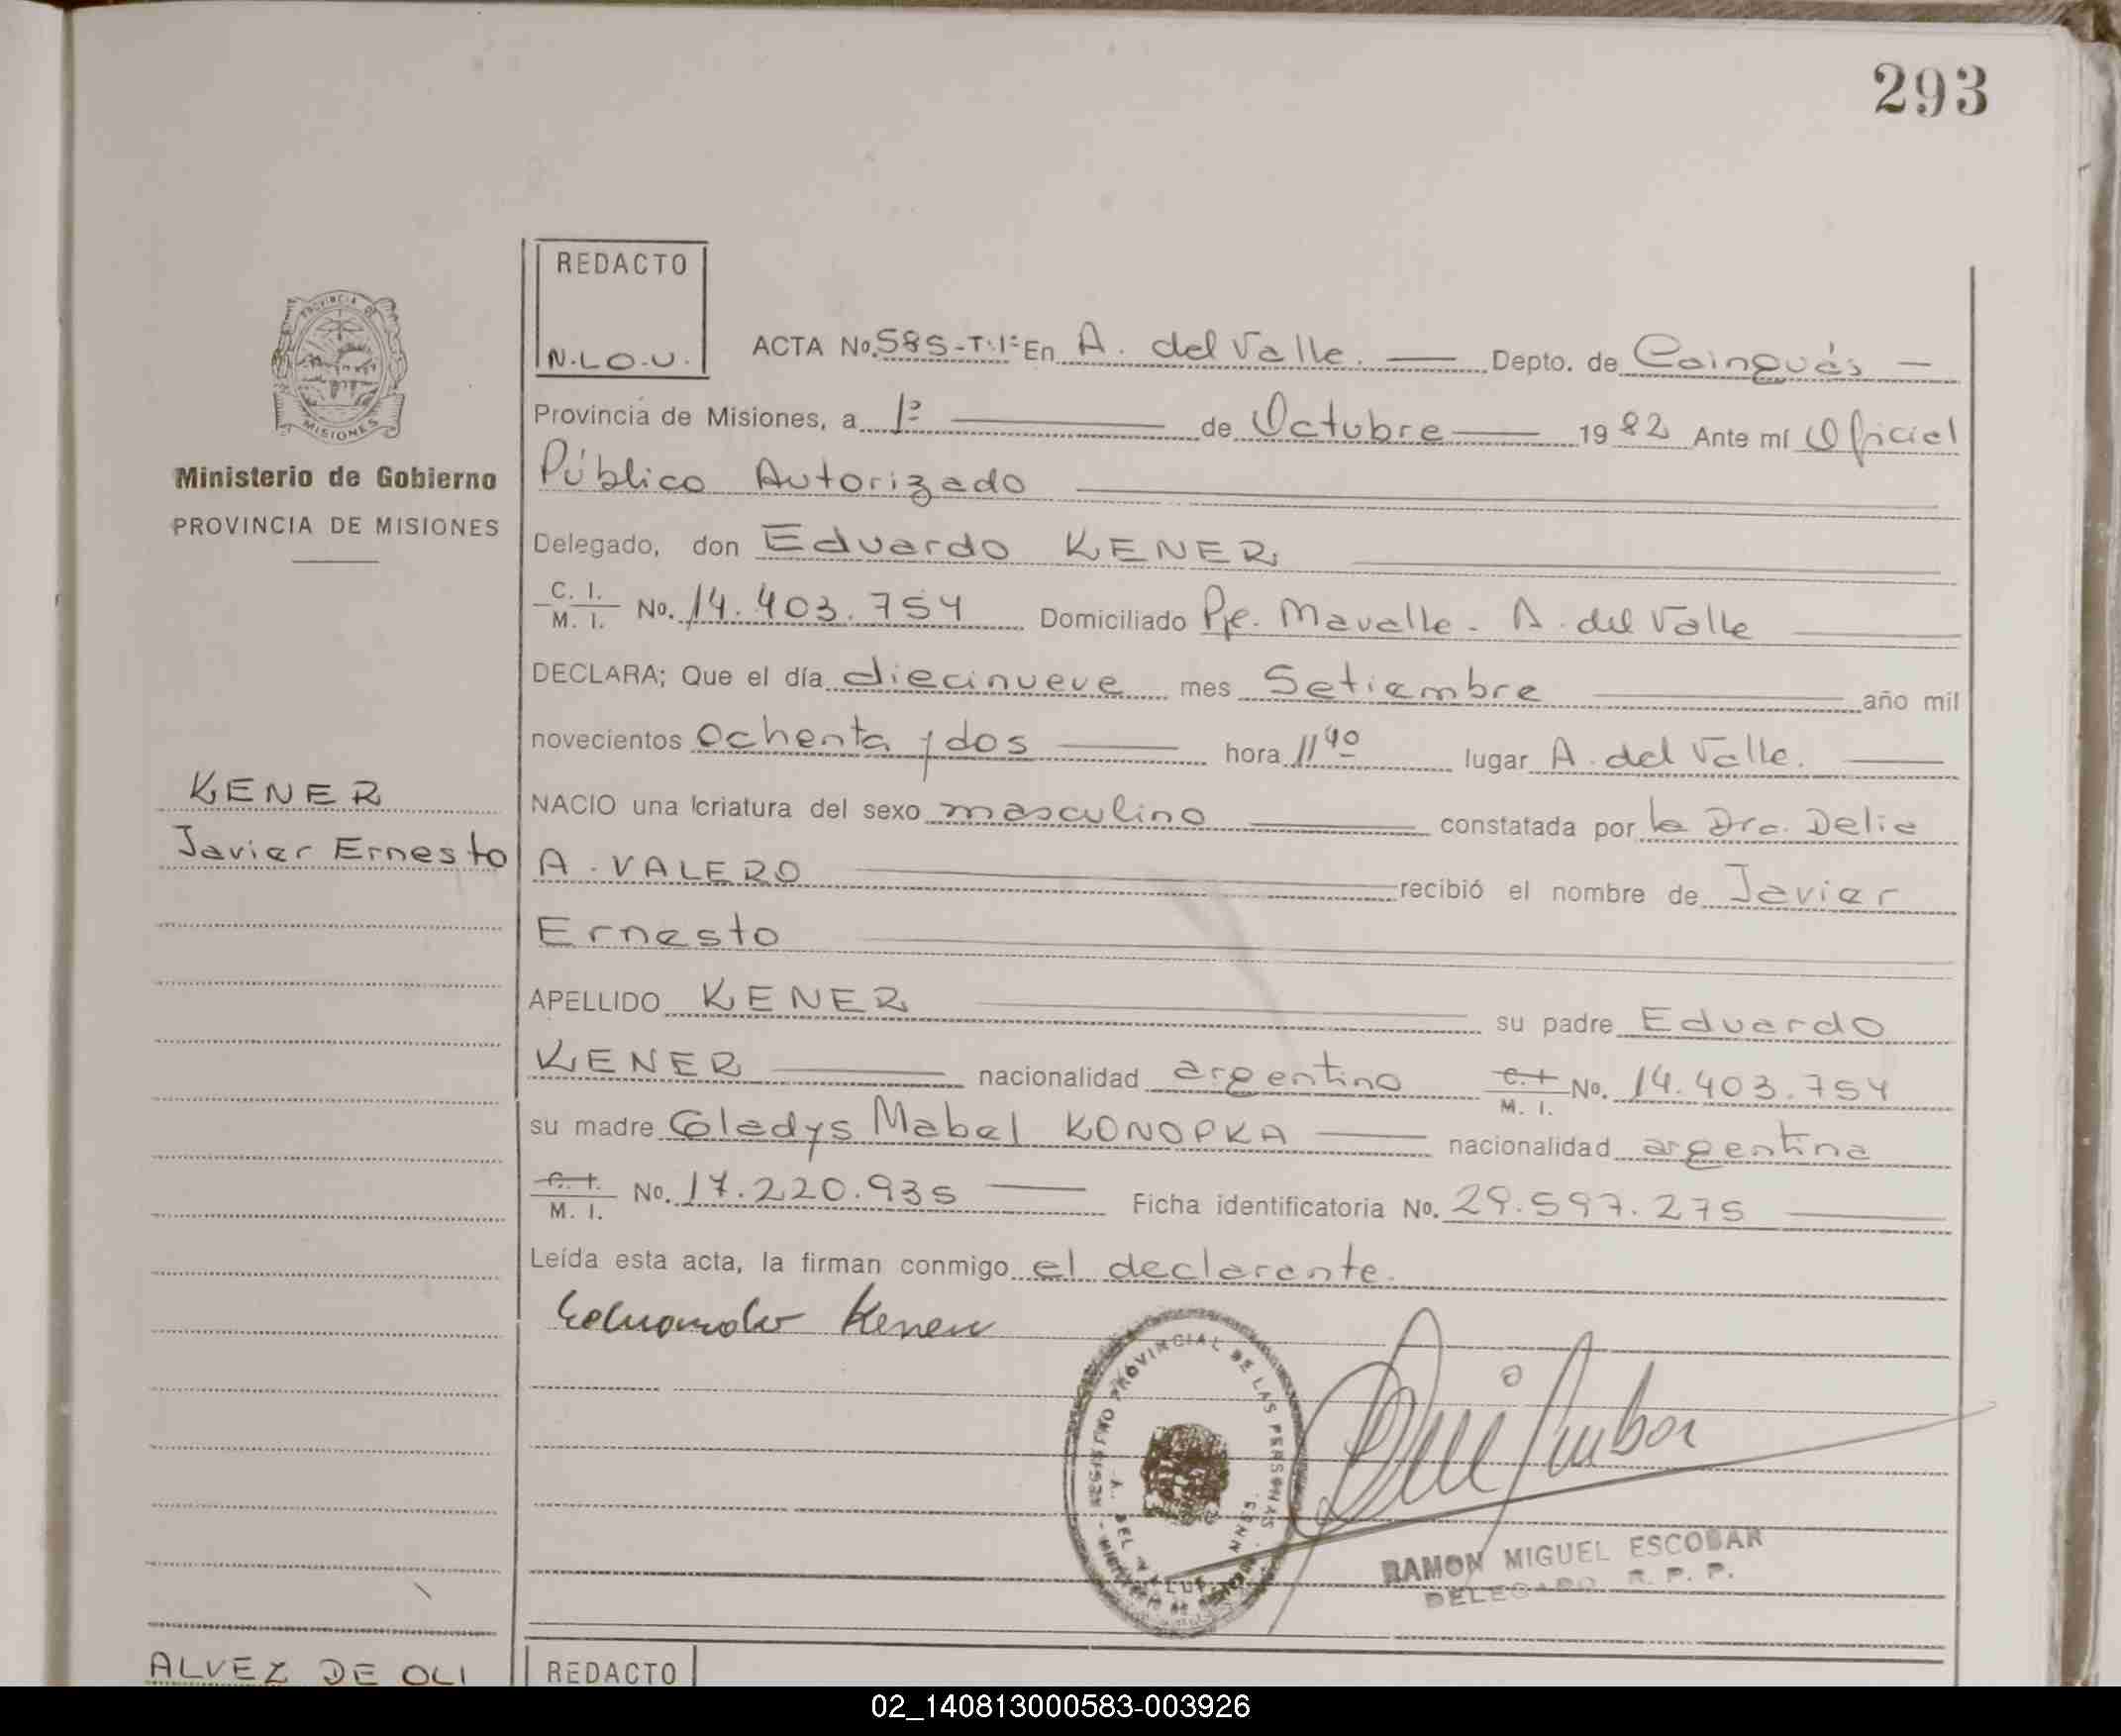 293
REDACTO
N.L.O.U.
ACTA No. 585-T.1º En A. del Valle. Depto. de Cainguás
Provincia de Misiones, a 1º de Octubre 1982 Ante mí Oficial
Público Autorizado
Delegado, don Eduardo KENER
C. I. / M. I. No. 14.403.754 Domiciliado Pje. Mavalle - A. del Valle
DECLARA; Que el día diecinueve mes Setiembre año mil
novecientos ochenta y dos hora 11 40 lugar A. del Valle.
NACIO una criatura del sexo masculino constatada por la Dra. Delia
A. VALERO recibió el nombre de Javier
Ernesto
APELLIDO KENER su padre Eduardo
KENER nacionalidad argentino C. I. / M. I. No. 14.403.754
su madre Gladys Mabel KONOPKA nacionalidad argentina
C. I. / M. I. No. 17.220.935 Ficha identificatoria No. 29.597.275
Leída esta acta, la firman conmigo el declarante.
Eduardo Kener
REGISTRO PROVINCIAL DE LAS PERSONAS
A. DEL VALLE
RAMON MIGUEL ESCOBAR
DELEGADO R. P. P.
PROVINCIA DE
MISIONES
Ministerio de Gobierno
PROVINCIA DE MISIONES
KENER
Javier Ernesto
ALVEZ DE OLI
REDACTO
02_140813000583-003926